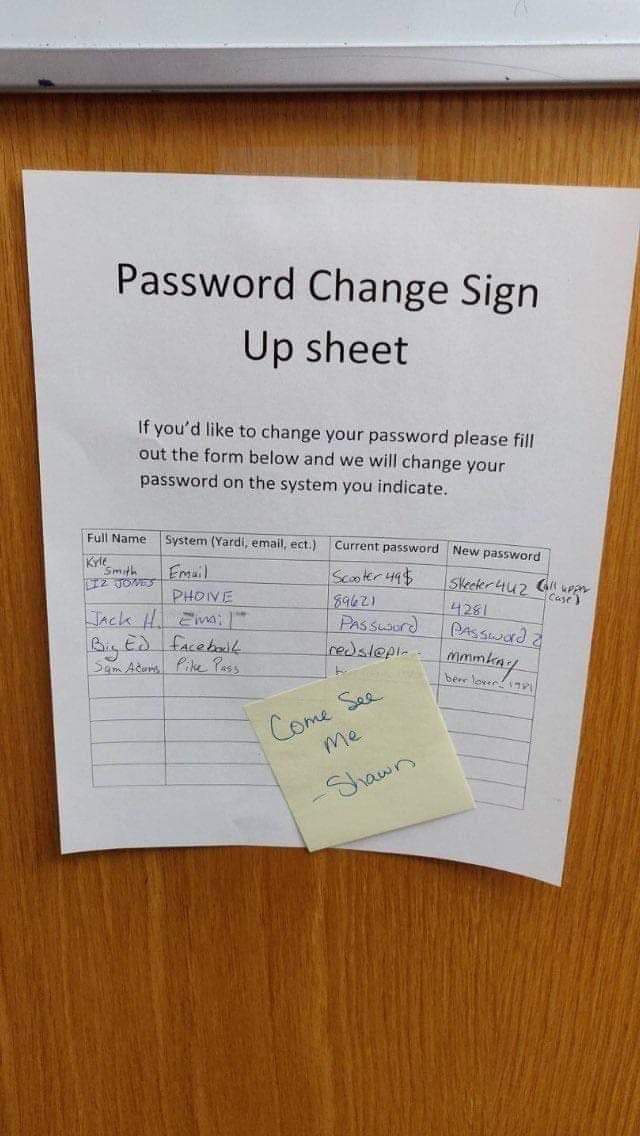 Password Change Sign
Up sheet
If you'd like to change your password please fill
out the form below and we will change your
password on the system you indicate.
Full Name System (Yardi, email, ect.) Current password New password
Kyle Smith Email Scooter449$ Skeeter442 (all upper case)
LIZ JONES PHONE 89621 4281
Jack H. Email Password Password 2
Big Ed facebook redstaple mmmkay
Sam Adams Pike Pass beer lover! 1981
Come See
me
-Shawn